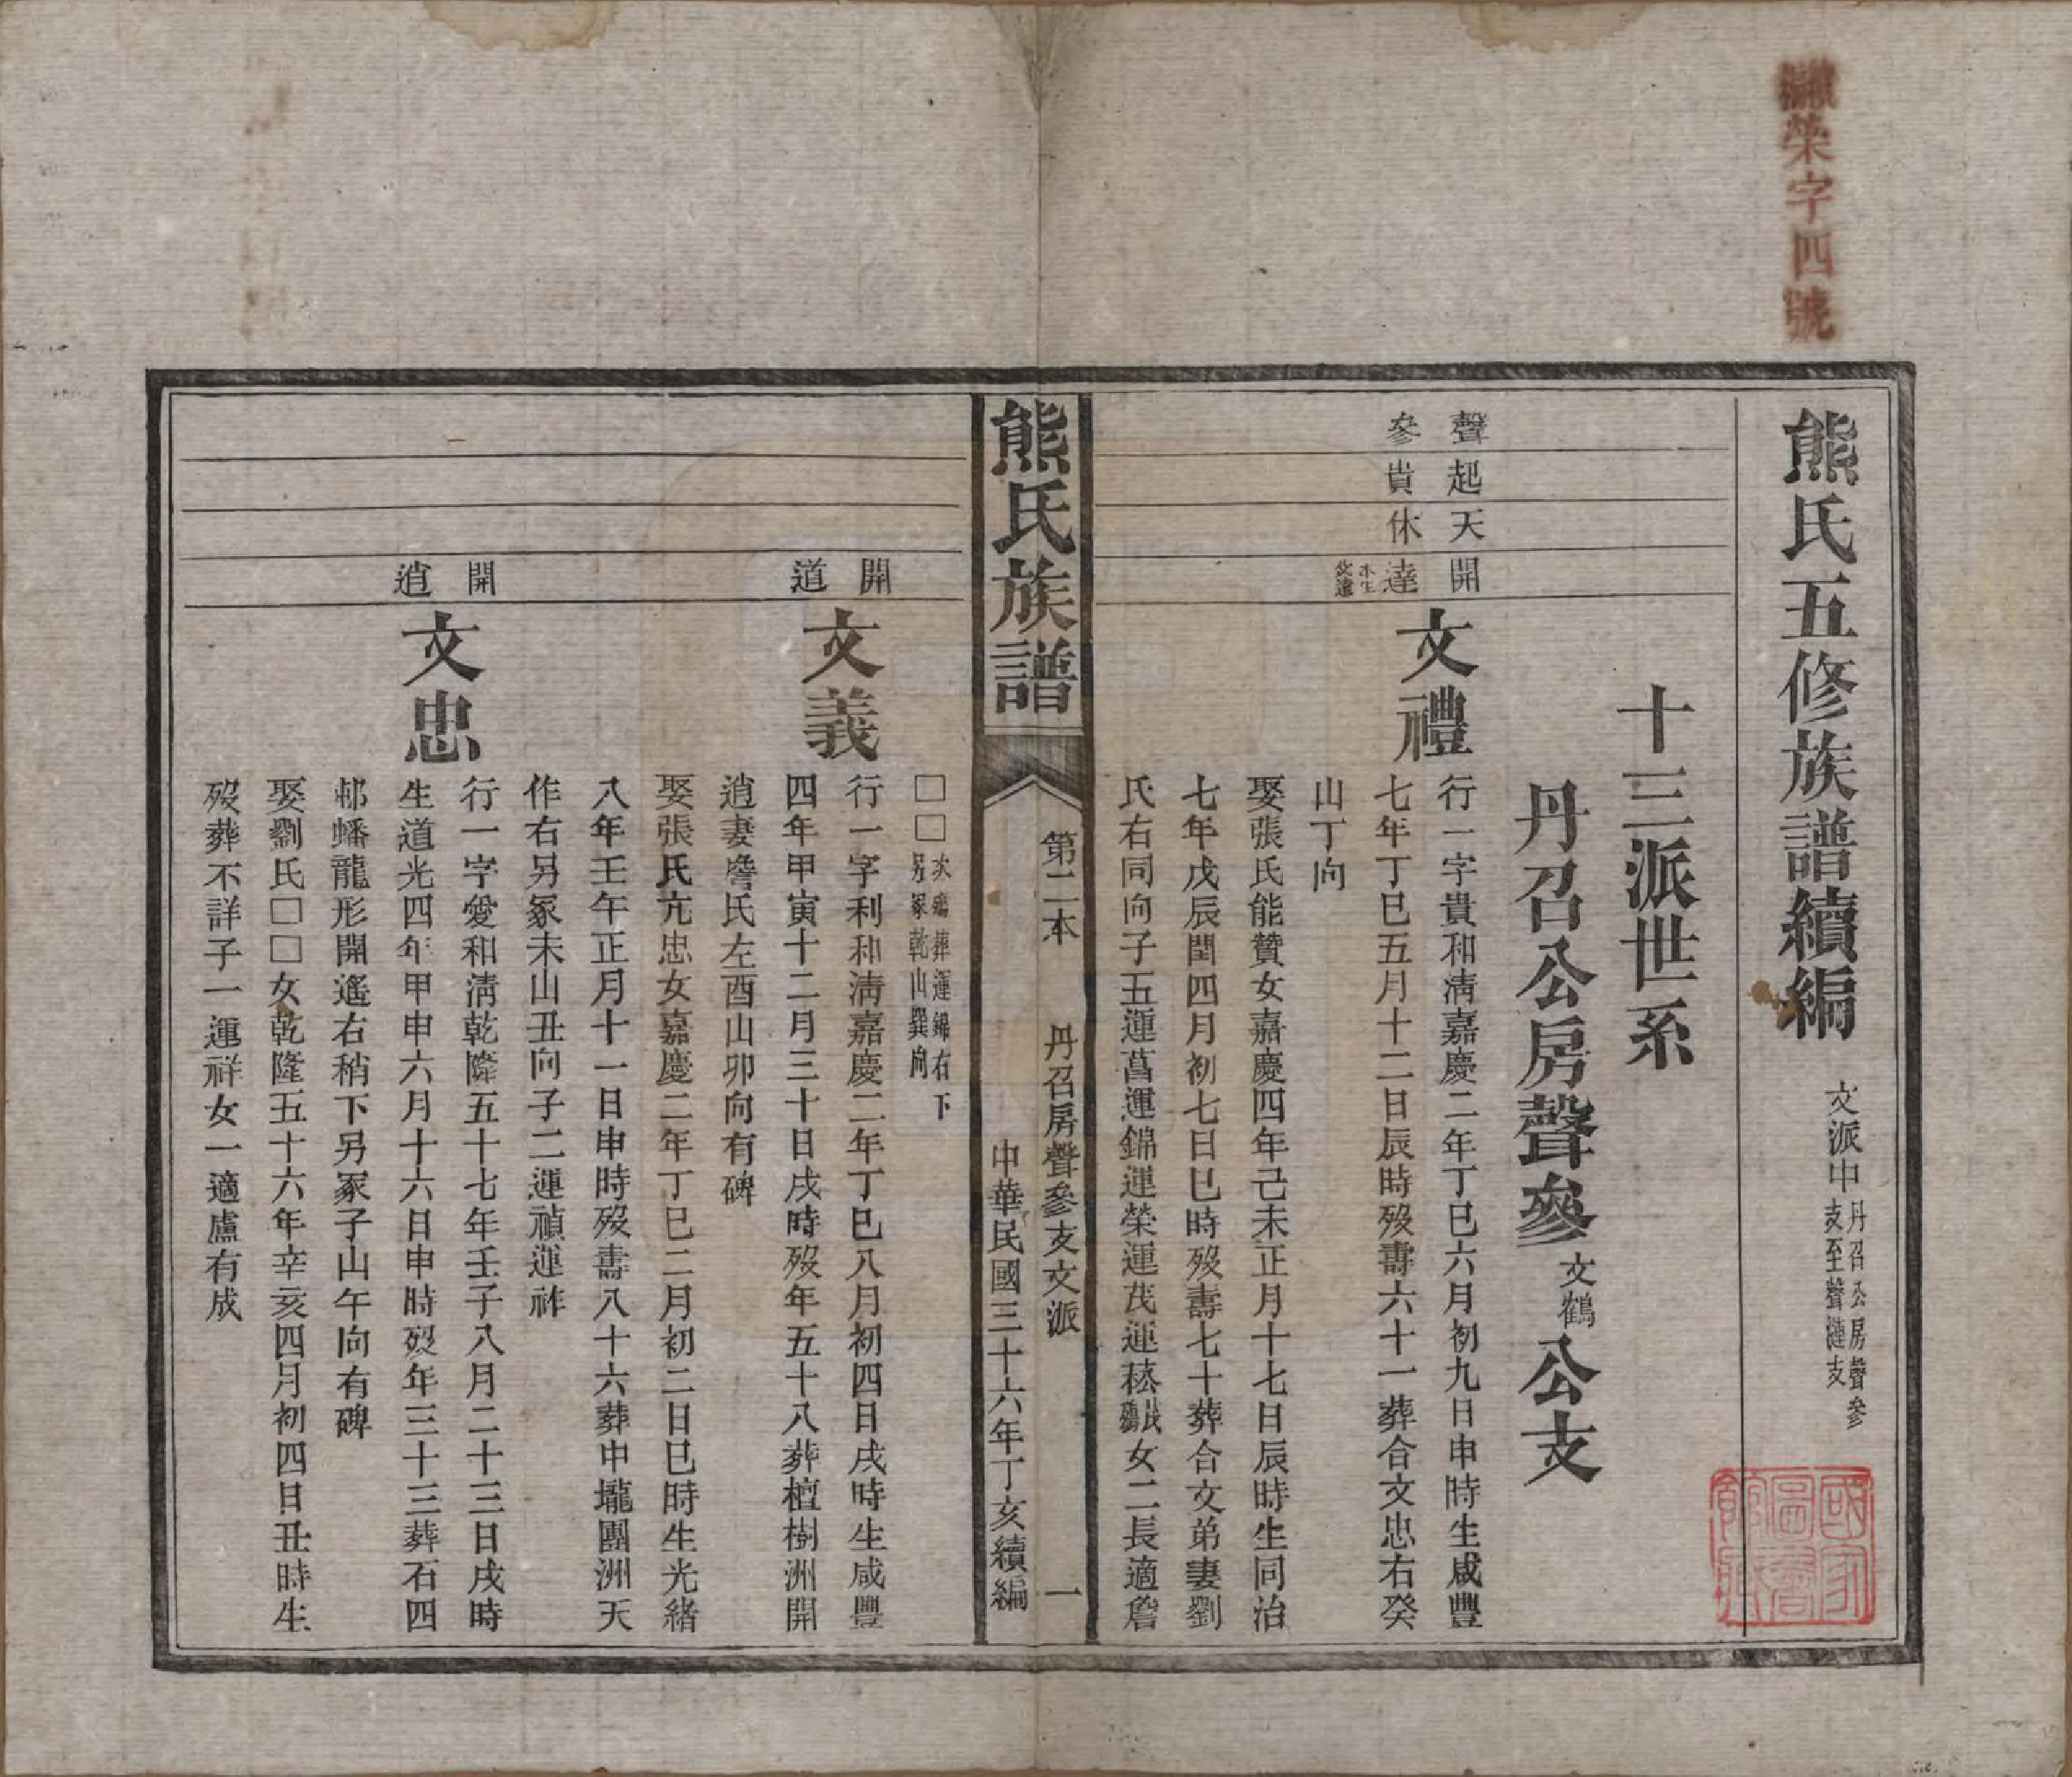 續榮字四號
熊氏五修族譜續編 文派中 丹召公房聲參支至聲漣支
十三派世系
丹召公房聲參 文鶴 公支
聲起天開
參貴休達
文禮
行一字貴和清嘉慶二年丁巳六月初九日申時生咸豐
七年丁巳五月十二日辰時歿壽六十一葬合文忠右癸
山丁向
娶張氏能贊女嘉慶四年己未正月十七日辰時生同治
七年戊辰閏四月初七日巳時歿壽七十葬合文弟妻劉
氏右同向子五運菖運錦運榮運茂運菘 女二長適詹
熊氏族譜
第二本 丹召房聲參支文派 一
中華民國三十六年丁亥續編
□□次殤葬運錦右下
另冢乾山巽向
開
道
文義
行一字利和清嘉慶二年丁巳八月初四日戌時生咸豐
四年甲寅十二月三十日戌時歿年五十八葬檀樹洲開
逍妻詹氏左酉山卯向有碑
娶張氏亢忠女嘉慶二年丁巳二月初二日巳時生光緒
八年壬午正月十一日申時歿壽八十六葬申壠團洲天
作右另冢未山丑向子二運禎運祚
開
逍
文忠
行一字愛和清乾隆五十七年壬子八月二十三日戌時
生道光四年甲申六月十六日申時歿年三十三葬石四
邨蟠龍形開遙右稍下另冢子山午向有碑
娶劉氏□□女乾隆五十六年辛亥四月初四日丑時生
歿葬不詳子一運祥女一適盧有成
國家圖書館藏